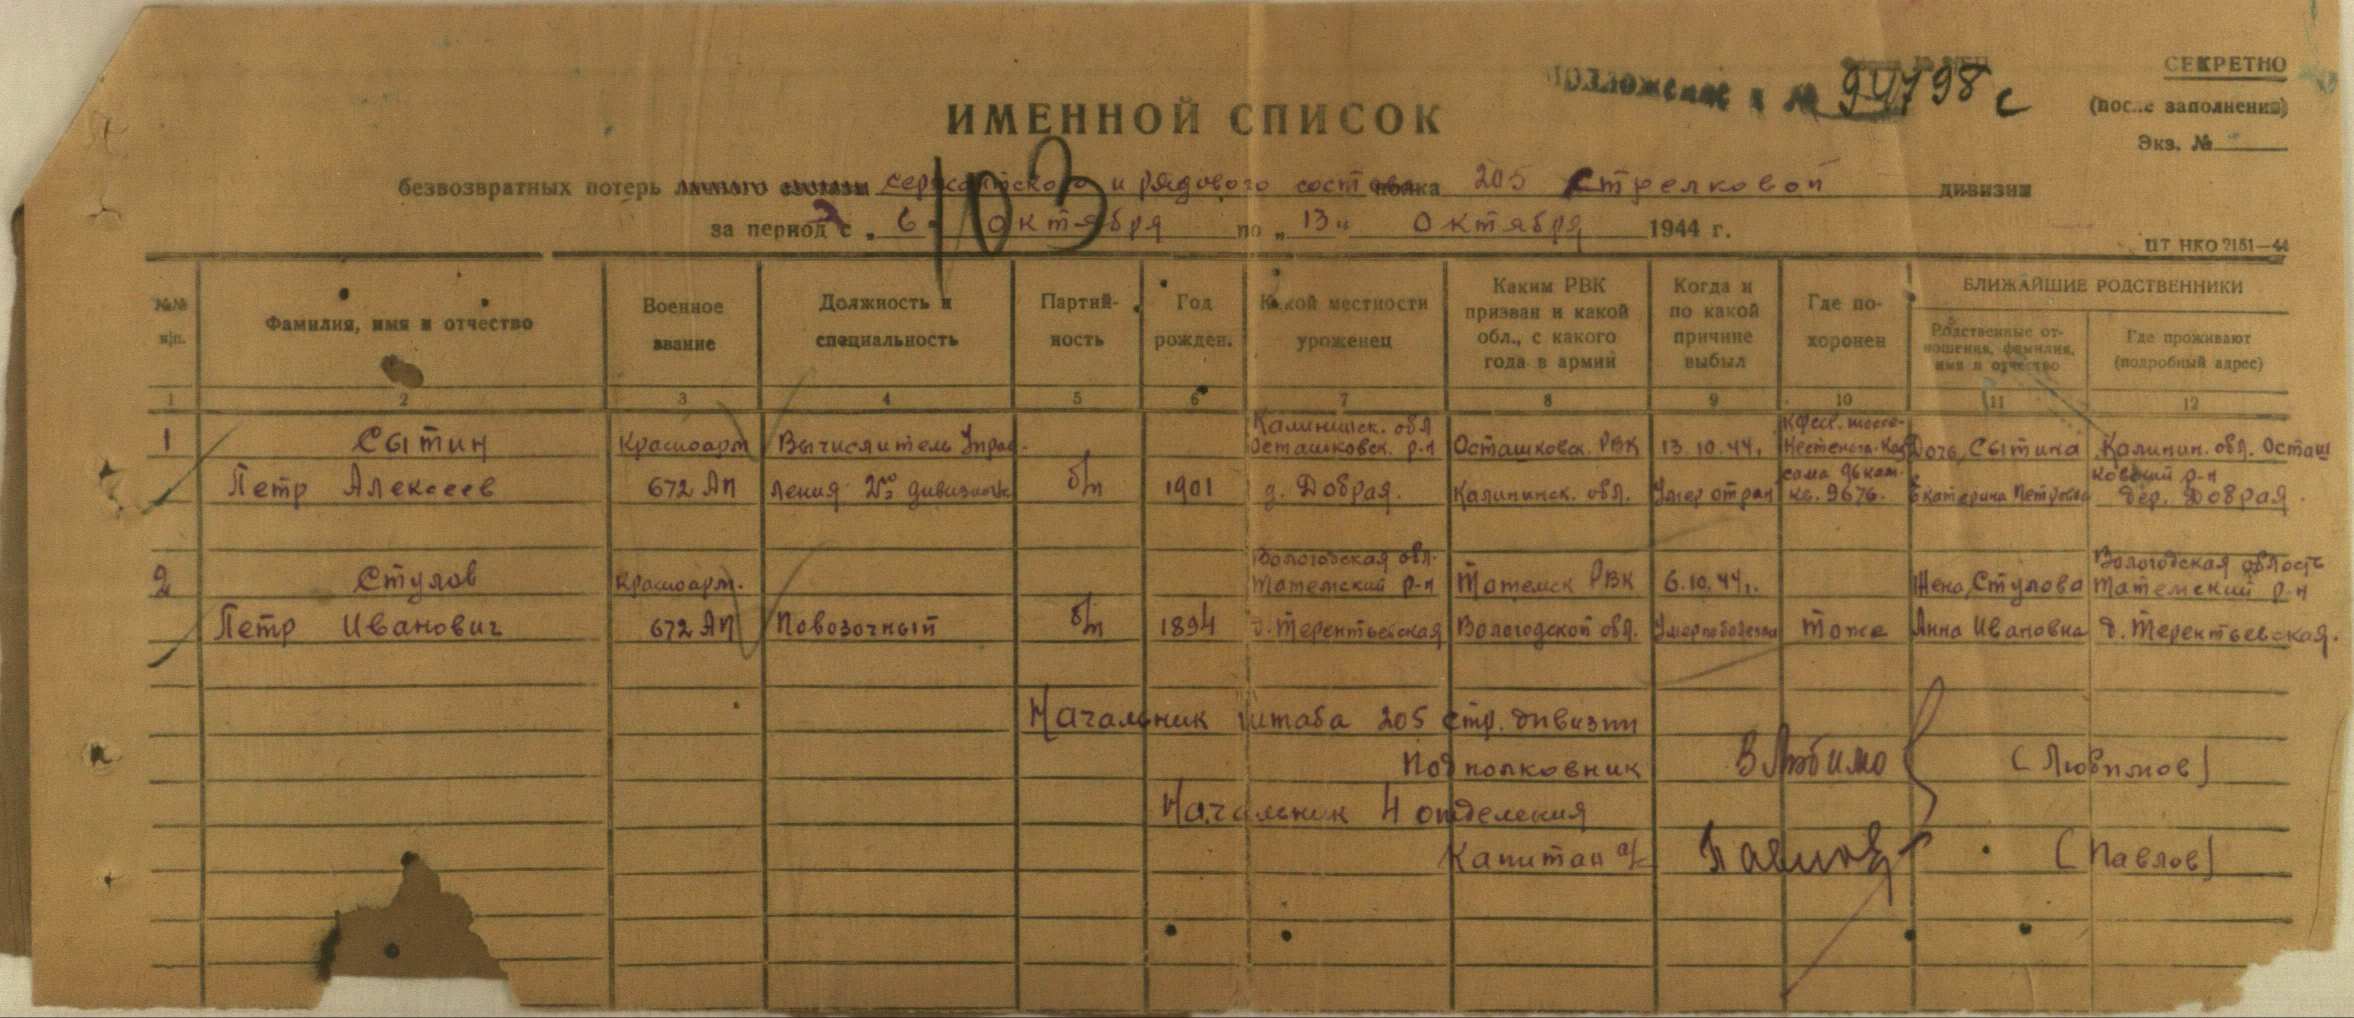 СЕКРЕТНО
(после заполнения)
Экз. №
№ 94798с
ИМЕННОЙ СПИСОК
103
безвозвратных потерь личного состава сержантского и рядового состава полка 205 Стрелковой дивизии
за период с „ 6 " октября по „ 13 " октября 1944 г.
ЦТ НКО 2151—44
№№ п|п.
Фамилия, имя и отчество
Военное звание
Должность и специальность
Партий-
ность
Год рожден.
Какой местности уроженец
Каким РВК призван и какой обл., с какого года в армии
Когда и по какой причине выбыл
Где по-
хоронен
БЛИЖАЙШИЕ РОДСТВЕННИКИ
Родственные от-
ношения, фамилия, имя и отчество
Где проживают (подробный адрес)
1 2 3 4 5 6 7 8 9 10 11 12
1 Сытин Красноарм Вычислитель Управ- Калининск. обл Осташковск. р-н Осташковск. РВК 13.10.44г. Дочь, Сытина Калинин. обл. Осташ
Петр Алексеев 672 АП ления 2го дивизиона б/п 1901 д. Добрая. Калининск. обл. Умер от ран кв. 9676. Екатерина Петровна ковский р-н дер. Добрая.
2 Стулов Красноарм. Вологодская обл. Татемский р-н Татемск РВК 6.10.44г. Жена, Стулова Вологодская область Татемский р-н
Петр Иванович 672 АП Повозочный б/п 1894 д. Терентьевская Вологодской обл. Умер по болезни тоже Анна Ивановна д. Терентьевская.
Начальник штаба 205 стр. дивизии
Подполковник В Любимо (Любимов)
Начальник 4 отделения
Капитан а/с Павлов (Павлов)